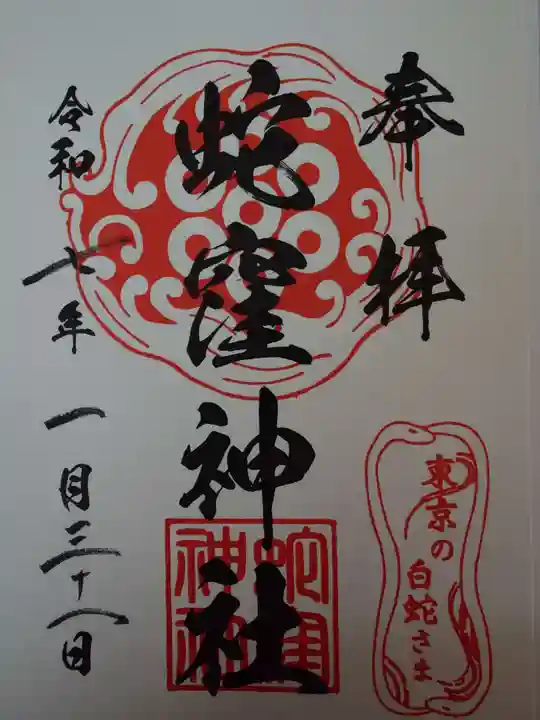 奉拝
蛇窪神社
令和七年一月三十一日
蛇窪神社
東京の
白蛇さま